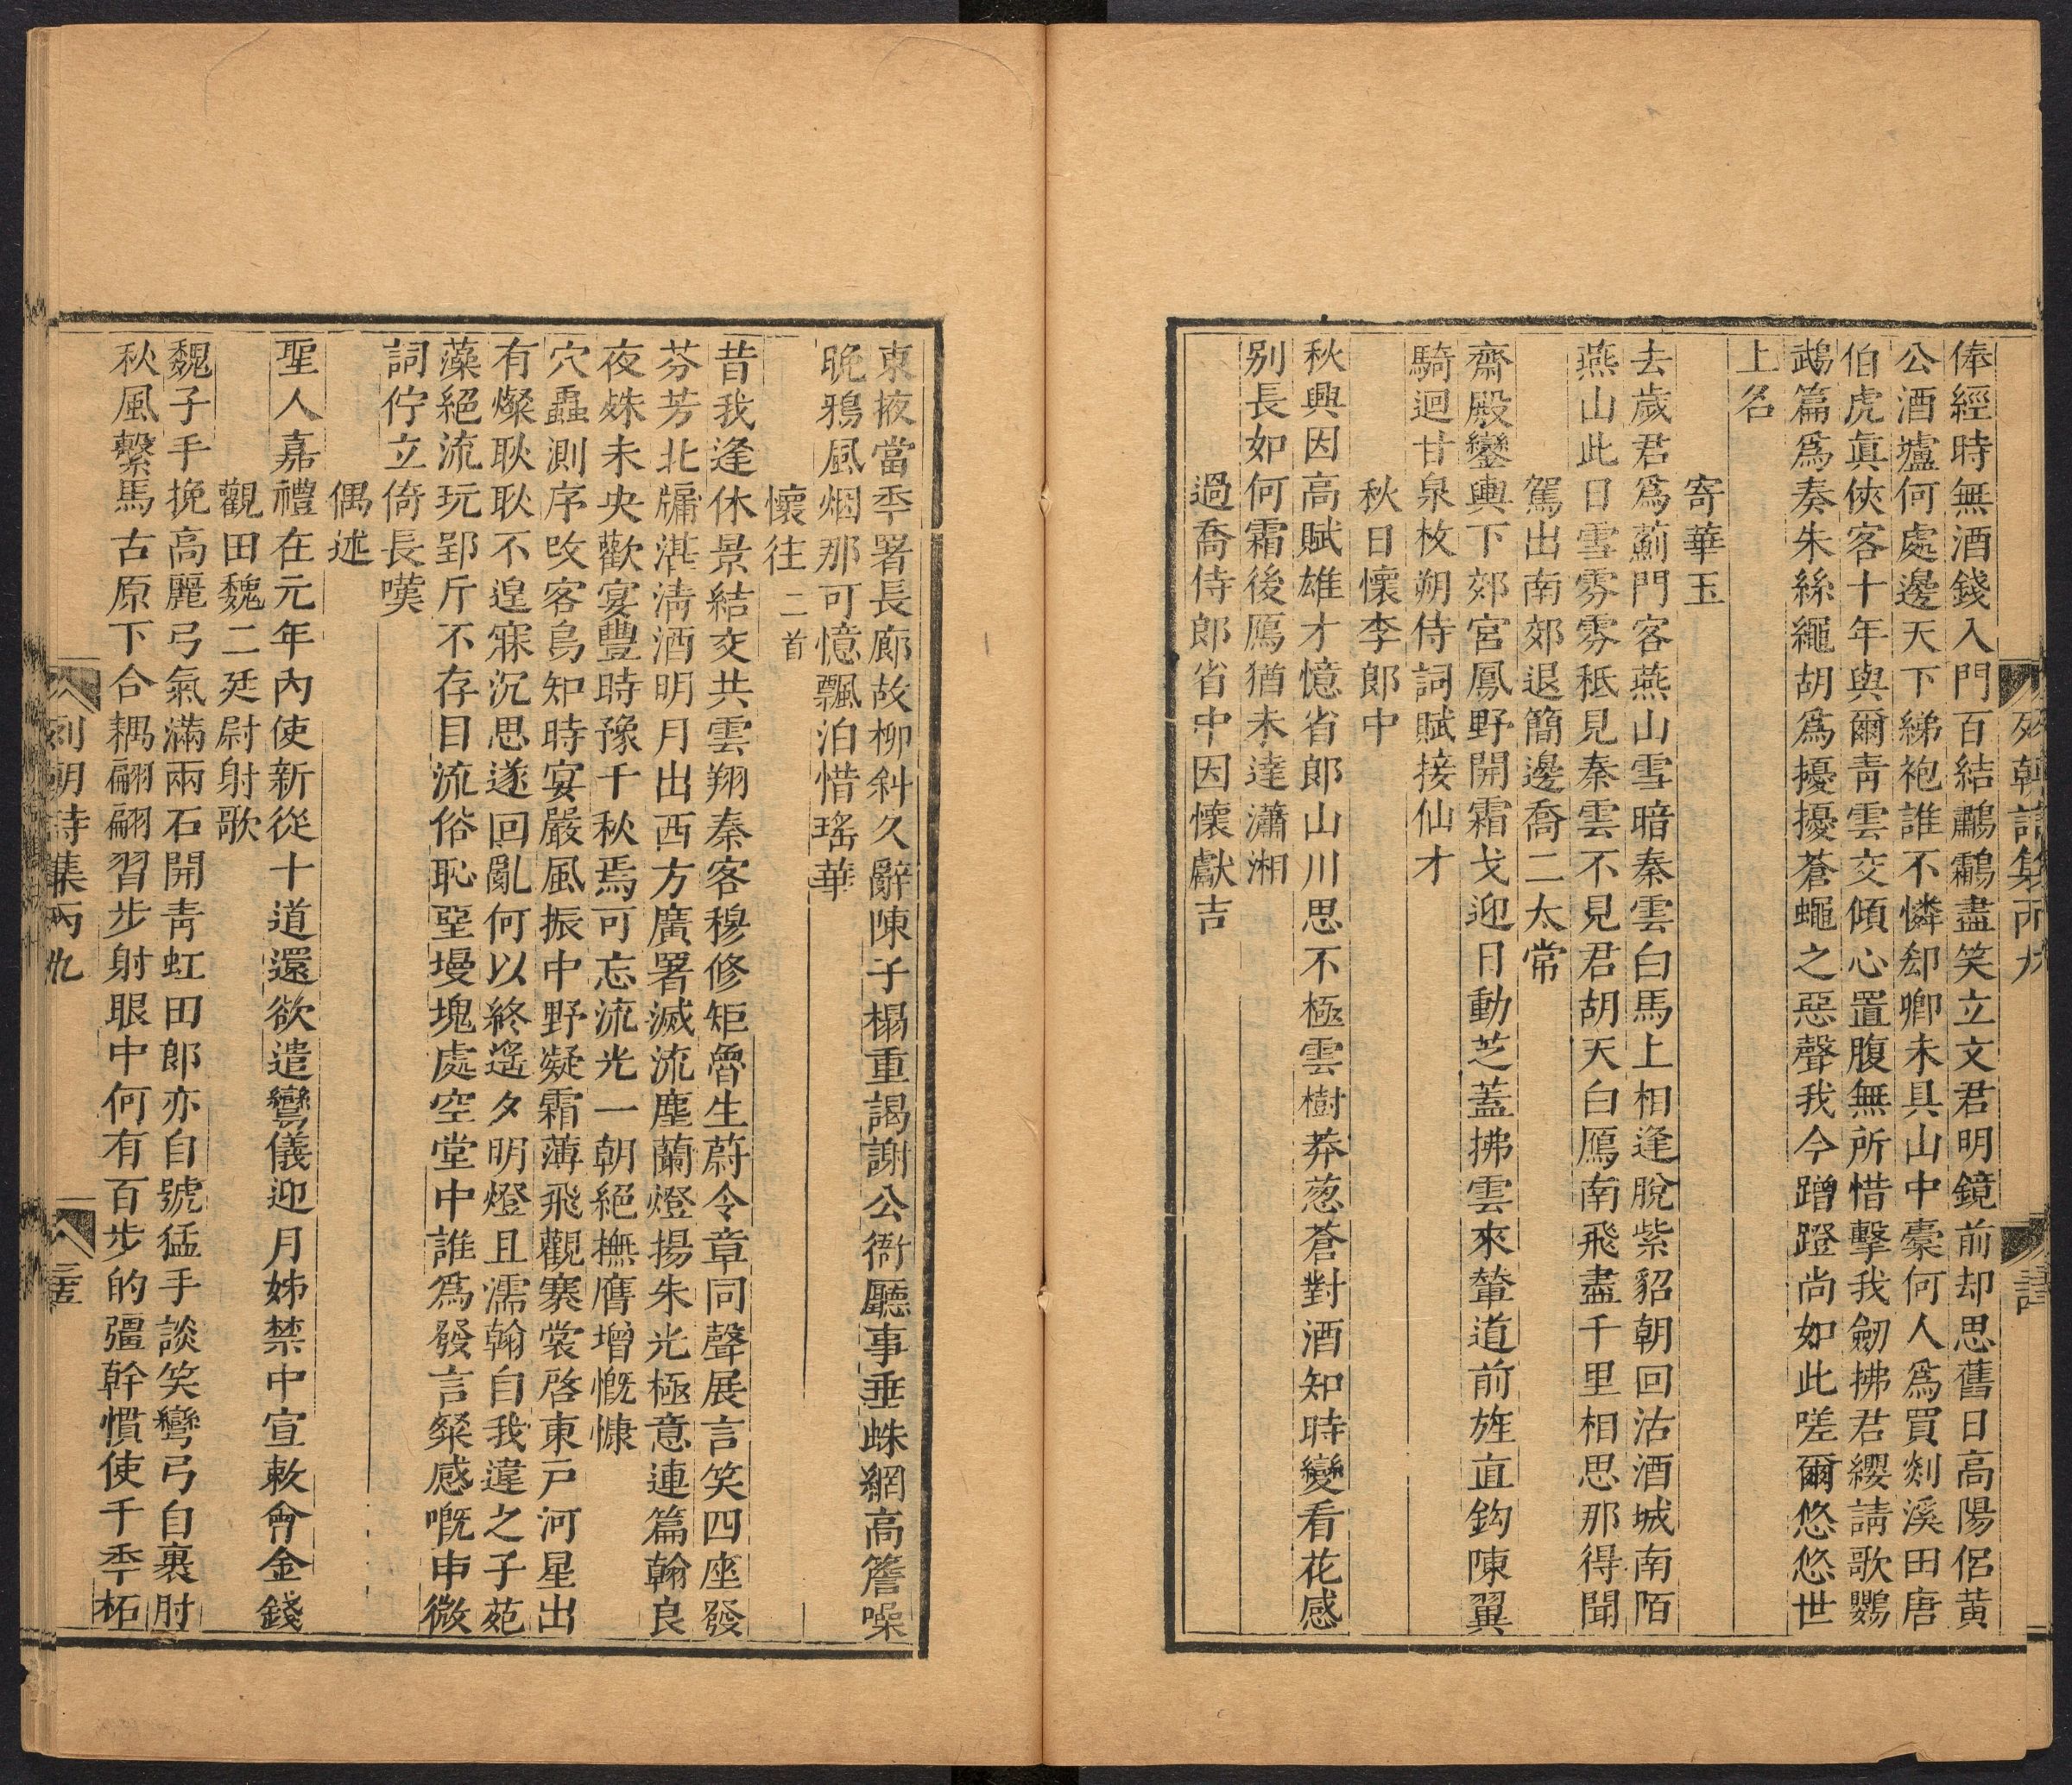 俸經時無酒錢入門百結鸘盡笑立文君明鏡前却思舊日高陽侶黄
公酒壚何處邊天下綈袍誰不憐郄卿未具山中橐何人爲買剡溪田唐
伯虎眞俠客十年與爾靑雲交傾心置腹無所惜擊我劒拂君纓請歌鸚
鵡篇爲奏朱絲繩胡爲擾擾蒼蠅之惡聲我今蹭蹬尚如此嗟爾悠悠世
上名
寄華玉
去歲君爲薊門客燕山雪暗秦雲白馬上相逢脫紫貂朝回沽酒城南陌
燕山此日雪雰雰秪見秦雲不見君胡天白鴈南飛盡千里相思那得聞
駕出南郊退簡邊喬二太常
齋殿鑾輿下郊宮鳳野開霜戈迎日動芝蓋拂雲來輦道前旌直鈎陳翼
騎迴甘泉枚朔侍詞賦接仙才
秋日懷李郎中
秋興因高賦雄才憶省郎山川思不極雲樹莽葱蒼對酒知時變看花感
别長如何霜後鴈猶未達瀟湘
過喬侍郎省中因懷獻吉
東掖當年署長廊故柳斜久辭陳子榻重謁謝公衙廳事垂蛛網高簷噪
晚鴉風烟那可憶飄泊惜瑤華
懷往二首
昔我逢休景結交共雲翔秦客穆修矩魯生蔚令章同聲展言笑四座發
芬芳北牖湛淸酒明月出西方廣署滅流塵蘭燈揚朱光極意連篇翰良
夜殊未央歡宴豐時豫千秋焉可忘流光一朝絕撫膺增慨慷
穴蟲測序改客鳥知時宴嚴風振中野凝霜薄飛觀褰裳啓東戸河星出
有燦耿耿不遑寐沉思遂回亂何以終遙夕明燈且濡翰自我違之子苑
藻絕流玩郢斤不存目流俗恥堊墁塊處空堂中誰爲發言粲感嘅申微
詞佇立倚長嘆
偶述
聖人嘉禮在元年內使新從十道還欲遣鸞儀迎月姊禁中宣敕會金錢
觀田魏二廷尉射歌
魏子手挽高麗弓氣滿兩石開靑虹田郎亦自號猛手談笑彎弓自裹肘
秋風繫馬古原下合耦翩翩習步射眼中何有百步的彊幹慣使千年柘
列朝詩集丙九
三五